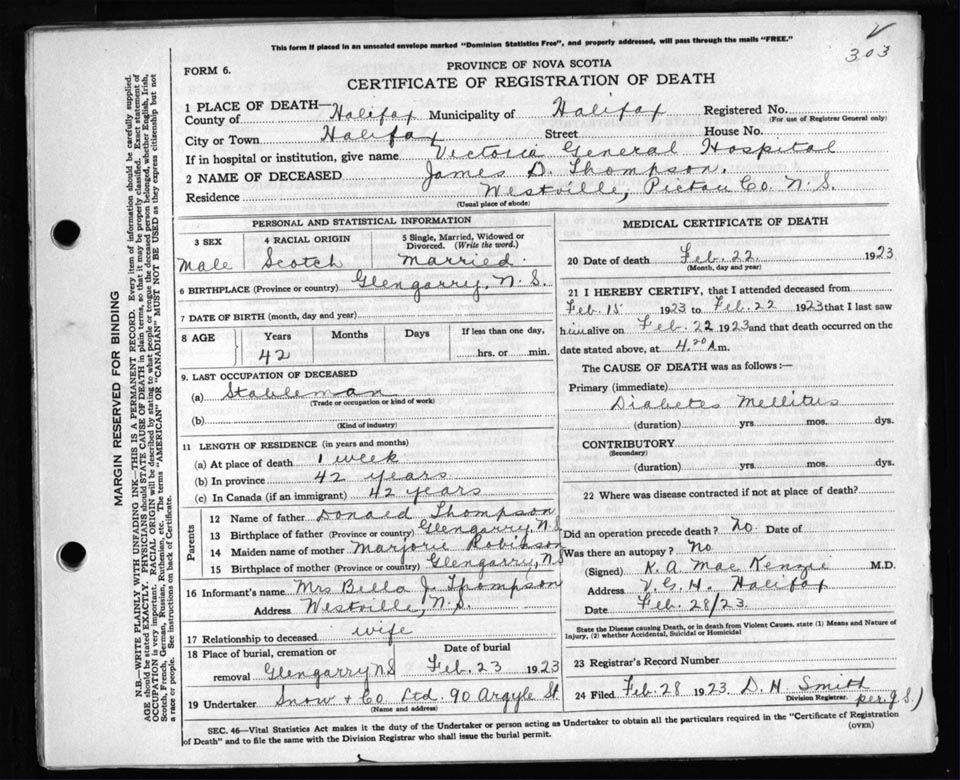 This form if placed in an unsealed envelope marked "Dominion Statistics Free", and properly addressed, will pass through the mails "FREE."
303
FORM 6.
PROVINCE OF NOVA SCOTIA
CERTIFICATE OF REGISTRATION OF DEATH
1 PLACE OF DEATH—
County of Halifax Municipality of Halifax Registered No.
(For use of Registrar General only)
City or Town Halifax Street House No.
If in hospital or institution, give name Victoria General Hospital
2 NAME OF DECEASED James D. Thompson.
Residence Westville, Pictou Co. N.S.
(Usual place of abode)
PERSONAL AND STATISTICAL INFORMATION
3 SEX 4 RACIAL ORIGIN 5 Single, Married, Widowed or Divorced. (Write the word.)
Male Scotch Married.
6 BIRTHPLACE (Province or country) Glengarry, N.S.
7 DATE OF BIRTH (month, day and year)
8 AGE Years Months Days If less than one day,
42 hrs. or min.
9. LAST OCCUPATION OF DECEASED
(a) Stableman
(Trade or occupation or kind of work)
(b)
(Kind of industry)
11 LENGTH OF RESIDENCE (in years and months)
(a) At place of death 1 week
(b) In province 42 years
(c) In Canada (if an immigrant) 42 years
Parents
12 Name of father Donald Thompson
13 Birthplace of father (Province or country) Glengarry, N.S.
14 Maiden name of mother Marjorie Robinson
15 Birthplace of mother (Province or country) Glengarry, N.S
16 Informant's name Mrs Bella J. Thompson
Address Westville, N.S.
17 Relationship to deceased wife
18 Place of burial, cremation or removal Glengarry N.S Date of burial Feb. 23 1923
19 Undertaker Snow & Co Ltd. 90 Argyle St.
(Name and address)
MEDICAL CERTIFICATE OF DEATH
20 Date of death Feb. 22. 1923
(Month, day and year)
21 I HEREBY CERTIFY, that I attended deceased from
Feb. 15 1923 to Feb. 22 1923 that I last saw
him alive on Feb. 22 1923 and that death occurred on the
date stated above, at 4.20 A m.
The CAUSE OF DEATH was as follows:—
Primary (immediate)
Diabetes Mellitus
(duration) yrs mos. dys.
CONTRIBUTORY
(Secondary)
(duration) yrs. mos. dys.
22 Where was disease contracted if not at place of death?
Did an operation precede death? No. Date of
Was there an autopsy? No
(Signed) K. A. Mac Kenzie M.D.
Address V.G.H. Halifax
Date Feb. 28/23.
State the Disease causing Death, or in death from Violent Causes, state (1) Means and Nature of Injury, (2) whether Accidental, Suicidal or Homicidal
23 Registrar's Record Number
24 Filed Feb. 28 1923 D. H. Smith
Division Registrar.
per. J.S.)
SEC. 46—Vital Statistics Act makes it the duty of the Undertaker or person acting as Undertaker to obtain all the particulars required in the "Certificate of Registration
of Death" and to file the same with the Division Registrar who shall issue the burial permit.
(OVER)
MARGIN RESERVED FOR BINDING
N.B.—WRITE PLAINLY WITH UNFADING INK—THIS IS A PERMANENT RECORD. Every item of information should be carefully supplied.
AGE should be stated EXACTLY. PHYSICIANS should STATE CAUSE OF DEATH in plain terms, so that it may be properly classified. Exact statement of
OCCUPATION is very important. RACIAL ORIGIN will be described by stating to what people or tongue the deceased person belonged, whether English, Irish,
Scotch, French, German, Russian, Ruthenian, etc. The terms "AMERICAN" OR "CANADIAN" MUST NOT BE USED as they express citizenship but not
a race or people. See instructions on back of Certificate.